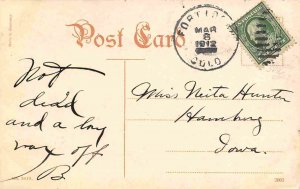 Post Card
MAR
8
1912
COLO
Not
dead
and a long
way off
B
Miss Neita Hunter
Hamburg
Iowa.